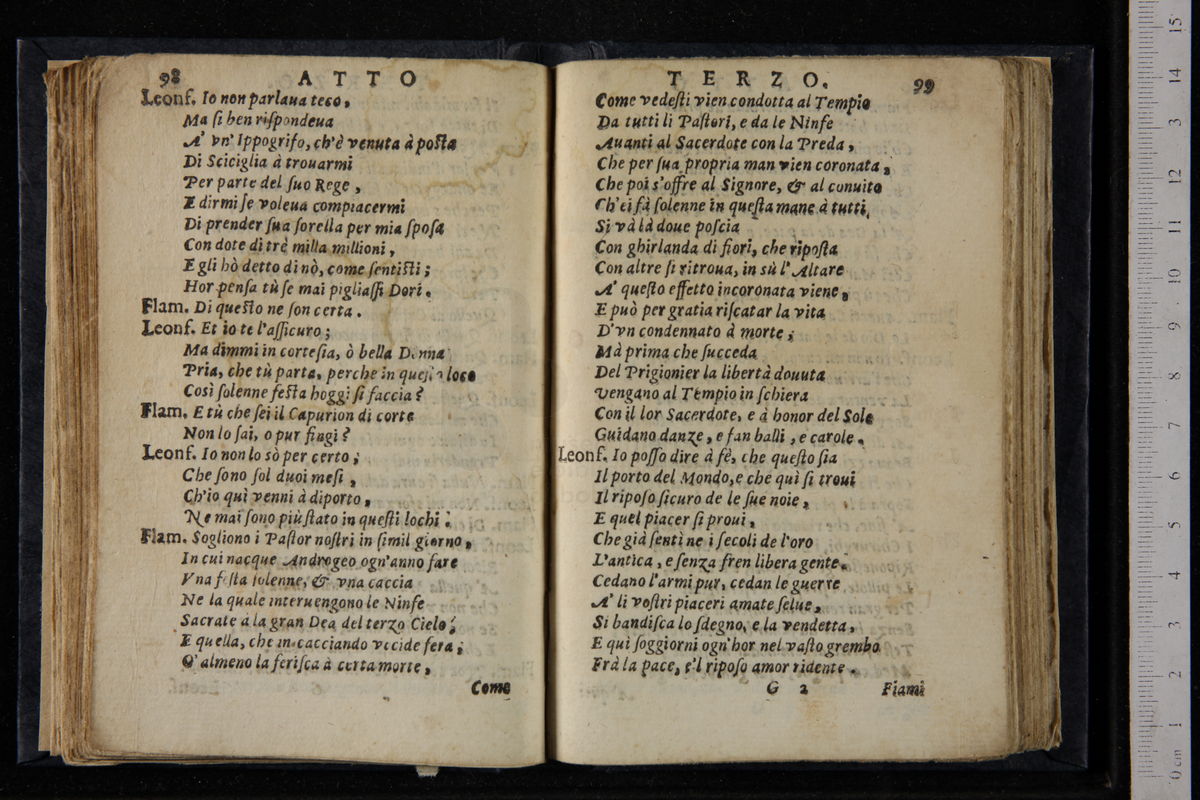 98 ATTO
Leonſ. Io non parlaua teco,
Ma ſi ben riſpondeua
A' vn' Ippogrifo, ch'è venuta à poſta
Di Sciciglia à trouarmi
Per parte del ſuo Rege,
E dirmi ſe voleua compiacermi
Di prender ſua ſorella per mia ſpoſa
Con dote di trè milla millioni,
E gli hò detto di nò, come ſentiſti;
Hor penſa tù ſe mai pigliaſſi Dori.
Flam. Di queſto ne ſon certa.
Leonſ. Et io te l'aſſicuro;
Ma dimmi in corteſia, ò bella Donna
Pria, che tù parta, perche in queſto loco
Così ſolenne feſta hoggi ſi faccia?
Flam. E tù che ſei il Capurion di corte
Non lo ſai, o pur fingi?
Leonſ. Io non lo sò per certo;
Che ſono ſol duoi meſi,
Ch'io quì venni à diporto,
Ne mai ſono più ſtato in queſti lochi.
Flam. Sogliono i Paſtor noſtri in ſimil giorno,
In cui nacque Androgeo ogn'anno fare
Vna feſta ſolenne, & vna caccia
Ne la quale interuengono le Ninfe
Sacrate à la gran Dea del terzo Cielo;
E quella, che in cacciando vccide fera;
O' almeno la feriſca à certa morte,
Come
TERZO. 99
Come vedeſti vien condotta al Tempio
Da tutti li Paſtori, e da le Ninfe
Auanti al Sacerdote con la Preda,
Che per ſua propria man vien coronata,
Che poi s'offre al Signore, & al conuito
Ch'ei fà ſolenne in queſta mane à tutti,
Si và là doue poſcia
Con ghirlanda di fiori, che ripoſta
Con altre ſi ritroua, in sù l'Altare
A' queſto effetto incoronata viene,
E può per gratia riſcatar la vita
D'vn condennato à morte;
Mà prima che ſucceda
Del Prigionier la libertà douuta
Vengano al Tempio in ſchiera
Con il lor Sacerdote, e à honor del Sole
Guidano danze, e fan balli, e carole.
Leonſ. Io poſſo dire à fè, che queſto ſia
Il porto del Mondo, e che quì ſi troui
Il ripoſo ſicuro de le ſue noie,
E quel piacer ſi proui,
Che già ſentì ne i ſecoli de l'oro
L'antica, e ſenza fren libera gente.
Cedano l'armi pur, cedan le guerre
A' li voſtri piaceri amate ſelue,
Si bandiſca lo ſdegno, e la vendetta,
E quì ſoggiorni ogn'hor nel vaſto grembo
Frà la pace, e'l ripoſo amor ridente.
G 2 Fiami